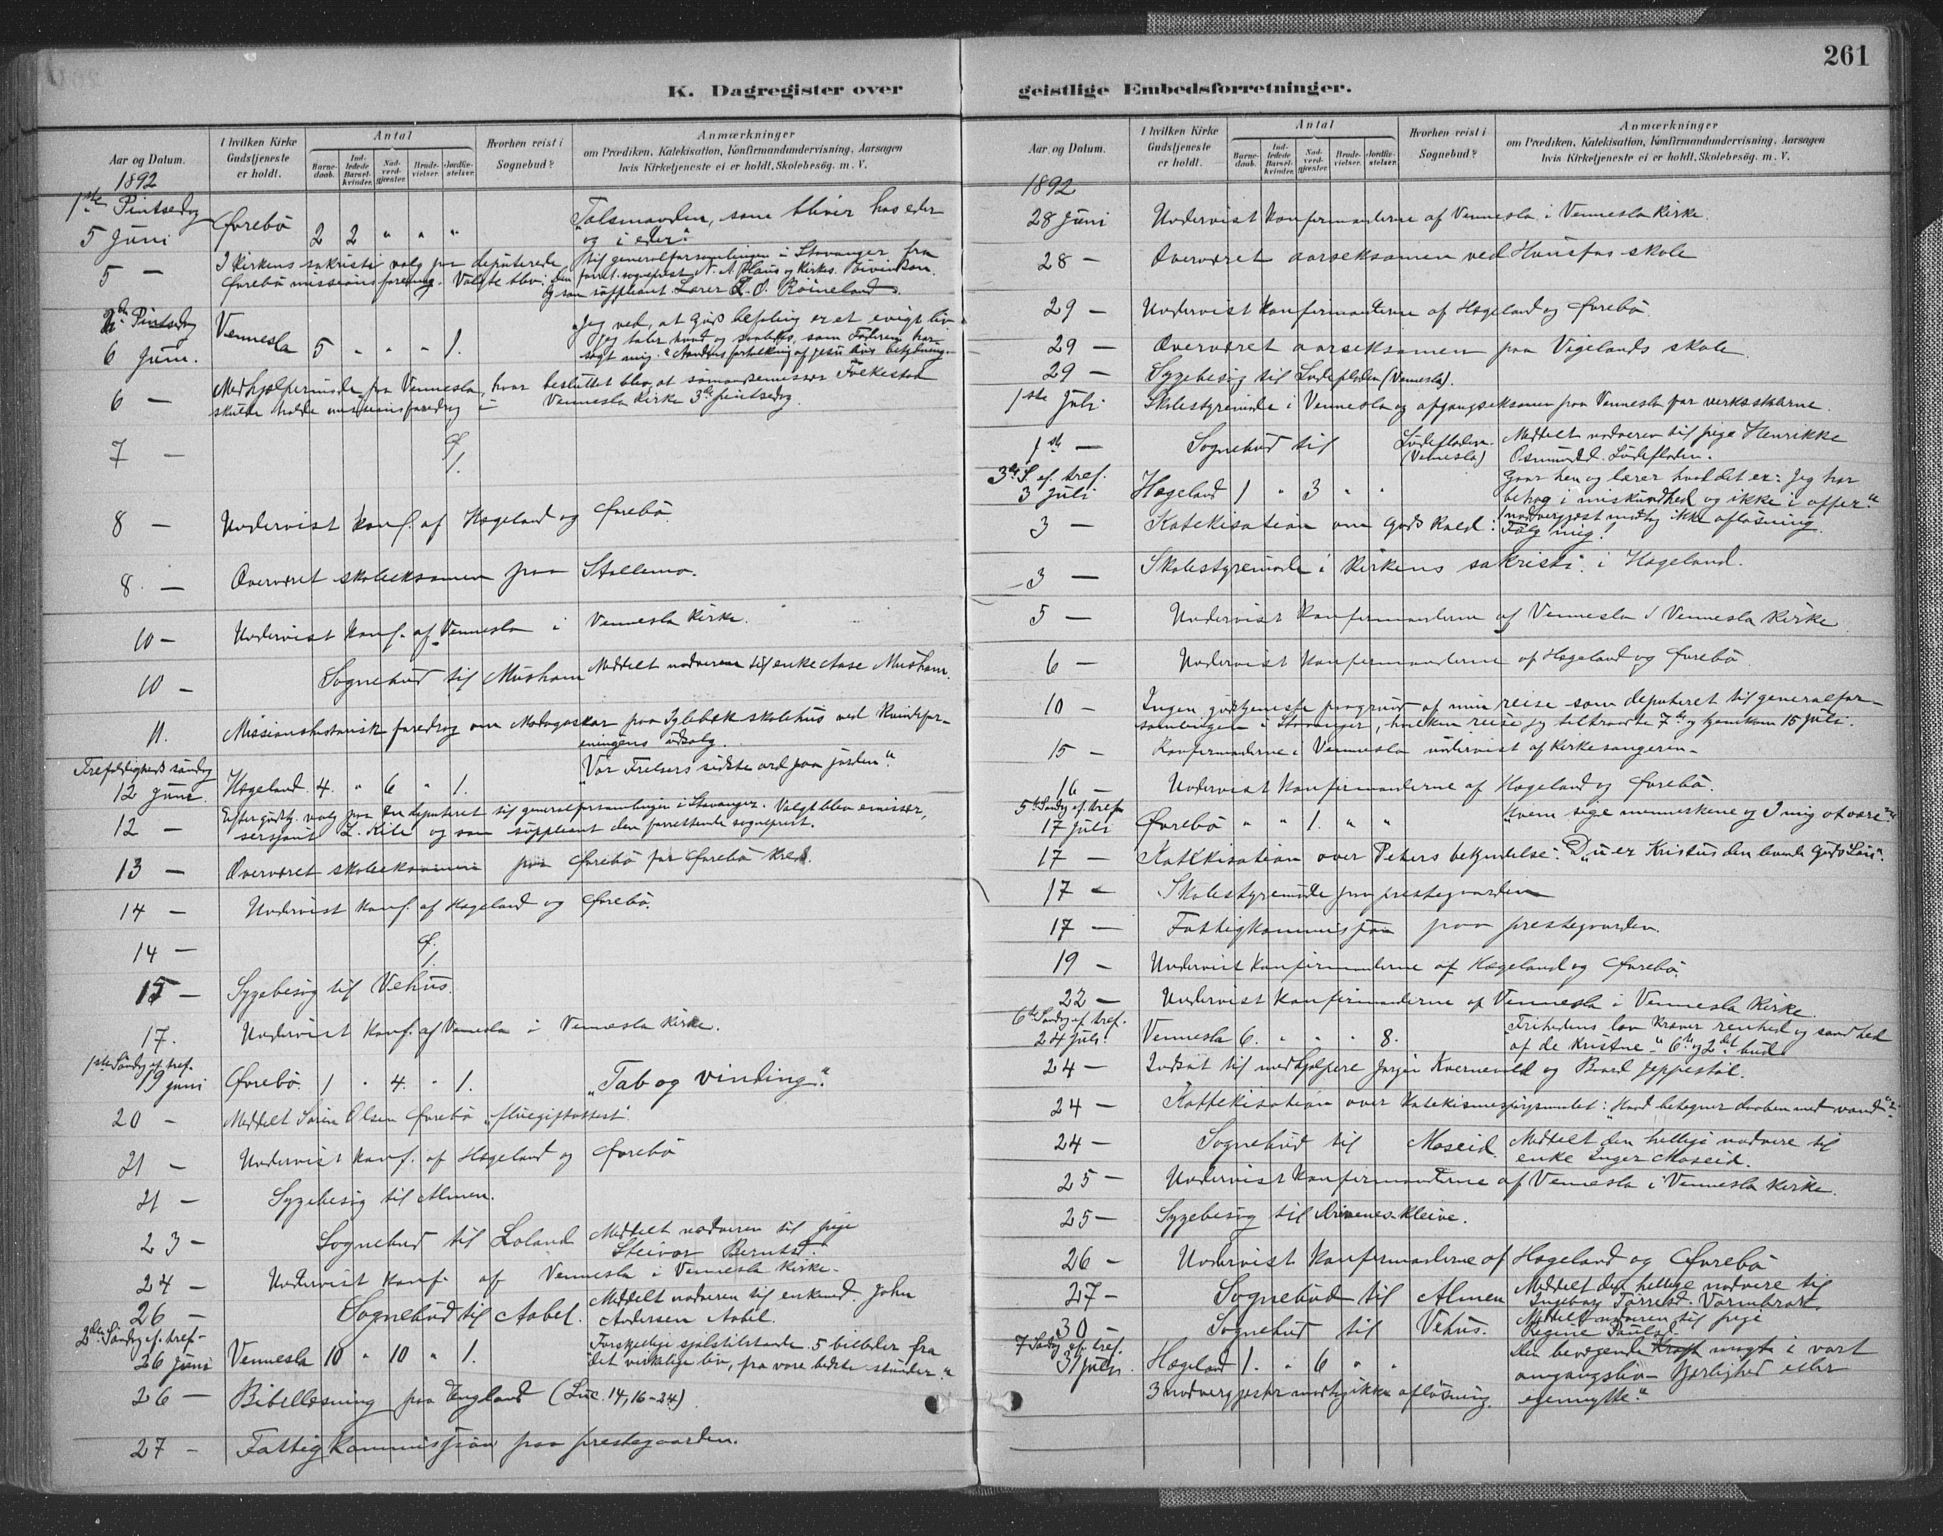 261
K. Dagregister over
geistlige Embedsforretninger.
Aar og Datum.
I hvilken Kirke Gudstjeneste er holdt.
Antal
Barnedaab.
Indledede Barselkvinder.
Nadverdgjester.
Brudevielser.
Jordfæstelser.
Hvorhen reist i Sognebud?
Anmærkninger
om Prædiken, Katekisation, Konfirmandundervisning, Aarsagen
hvis Kirketjeneste ei er holdt, Skolebesög. m. V.
1892
1ste Pintsedag
5 Juni Øvrebö 2 2 " " " Talsmanden, som bliver hos eder
og i eder."
5 — I Kirkens sakristi valg paa deputerede til generalforsamlingen i Stavanger fra
Øvrebö missionsforening. Valgte blev: den forret. sogneprest N. A. og Kirkes.
og som suppleant Lærer Röineland.
2den Pintsedag
6 Juni. Vennesla 5 " " " 1. "Jeg ved, at Guds befaling er et evigt liv
som Faderen har
sagt mig." Aandens
6 — Medhjælpermöde paa Vennesla, hvor besluttet blev, at sömandsemissær Folkestad
skulde holde missionsforedrag i Vennesla Kirke 3die pintsedag.
7 — 1.
8 — Undervist konf. af Hægeland og Øvrebö.
8 — Overværet skoleeksamen paa Stallemo.
10 — Undervist konf. af Vennesla i Vennesla Kirke.
10 — Sognebud til Musham Meddelt nadveren til enke Aase Musham.
11. Missionshistorisk foredrag om Madagaskar paa skolehus ved Kvindefor-
eningens udsalg.
Trefoldigheds söndag
12 Juni. Hægeland 4. " 6 " 1. "Vor Frelsers sidste ord paa jorden".
12 — Efter gudstj. valg paa en deputeret til generalforsamlingen i Stavanger. Valgt blev emissær,
sersjant L. Kile og som suppleant den forrettende sogneprest.
13 — Overværet skoleeksamen paa Øvrebö for Øvrebö kreds.
14 — Undervist konf. af Hægeland og Øvrebö.
14 — 1.
15 — Sygebesög til Vehus.
17. Undervist konf. af Vennesla i Vennesla Kirke.
1ste Söndag ef. tref.
19 juni Øvrebö. 1 " 4. " 1. "Tab og vinding".
20 — Meddelt Sören Olsen Øvrebö
21 — Undervist konf. af Hægeland og Øvrebö
21 — Sygebesög til Almen.
23 — Sognebud til Loland Meddelt nadveren til pige
Steivor Berntsd.
24 — Undervist konf. af Vennesla i Vennesla Kirke.
26 — Sognebud til Aabel. Meddelt nadveren til enkemd John
Andersen Aabel.
2den Söndag ef. tref.
26 juni Vennesla 10 " 10 " 1. Forskjellige sjælstilstande. 5 billeder fra
det virkelige liv, fra vore bedste stunder"
26 — Bibellæsning paa England (Luc. 14, 16-24).
27 — Fattigkommission paa prestegaarden.
Aar og Datum.
I hvilken Kirke Gudstjeneste er holdt.
Antal
Barnedaab.
Indledede Barselkvinder.
Nadverdgjester.
Brudevielser.
Jordfæstelser.
Hvorhen reist i Sognebud?
Anmærkninger
om Prædiken, Katekisation, Konfirmandundervisning, Aarsagen
hvis Kirketjeneste ei er holdt, Skolebesög. m. V.
1892
28 Juni Undervist Konfirmanderne af Vennesla i Vennesla Kirke.
28 — Overværet aarseksamen ved Hunsfos skole
29 — Undervist Konfirmanderne af Hægeland og Øvrebö.
29 — Overværet aarseksamen paa Vigelands skole.
29 — Sygebesög til (Vennesla).
1ste Juli Skolestyremöde i Vennesla og afgangseksamen paa Vennesla for
1ste — Sognebud til (Vennesla) Meddelt nadveren til pige Henrikke
Osmundsd.
3die S. ef. tref.
3 Juli Hægeland 1 " 3 " " Gaar hen og lærer hvad det er: Jeg har
behag i miskundhed og ikke i offer."
1 nadvergjæst modtog ikke aflösning.
3 — Katekisation om Guds kald: Fölg mig!
3 — Skolestyremöde i Kirkens sakristi i Hægeland.
5 — Undervist Konfirmanderne af Vennesla i Vennesla Kirke
6 — Undervist Konfirmanderne af Hægeland og Øvrebö
10 — Ingen gudstjeneste paagrund af min reise som deputeret til generalfor-
samlingen i Stavanger, hvilken reise jeg tiltraadte 7de og hjemkom 15 juli.
15 — Konfirmanderne i Vennesla undervist af Kirkesangeren.
16 — Undervist Konfirmanderne af Hægeland og Øvrebö.
5te Söndag ef. tref.
17 juli Øvrebö " " 1. " " "Hvem sige menneskene og I mig at være?"
17 — Katekisation over Peters bekjendelse: "Du er Kristus den levende Guds Sön".
17 — Skolestyremöde paa prestegaarden
17 — Fattigkommission paa prestegaarden.
19 — Undervist Konfirmanderne af Hægeland og Øvrebö.
22 — Undervist Konfirmanderne af Vennesla i Vennesla Kirke.
6te Söndag ef. tref.
24 juli Vennesla 6. " " " 8. Frihedens lov Kræver renhed og sandhed
af de Kristne." 6te og 2det bud
24 — Indsat til medhjælpere Jörgen Kvernevold og Baard Jeppestöl.
24 — Katekisation over Katekismespörgsmaalet: "Hvad betegner daaben med vand"?
24 — Sognebud til Moseid. Meddelt den hellige nadvere til
enke Inger Moseid.
25 — Undervist Konfirmanderne af Vennesla i Vennesla Kirke.
25 — Sygebesög til Drivenes-Kleive.
26 — Undervist Konfirmanderne af Hægeland og Øvrebö
27 — Sognebud til Almen Meddelt den hellige nadvere til
Ingeborg Torrelsd.
30 — Sognebud til Vehus. Meddelt nadveren til pige
Regine Paulsd.
7 Söndag ef. tref.
31 juli. Hægeland 1. " 6 " " Den bevægende Kraft magt i vort
omgangsliv — Kjærlighed eller
egennytte."
3 nadvergjester modtog ikke aflösning.